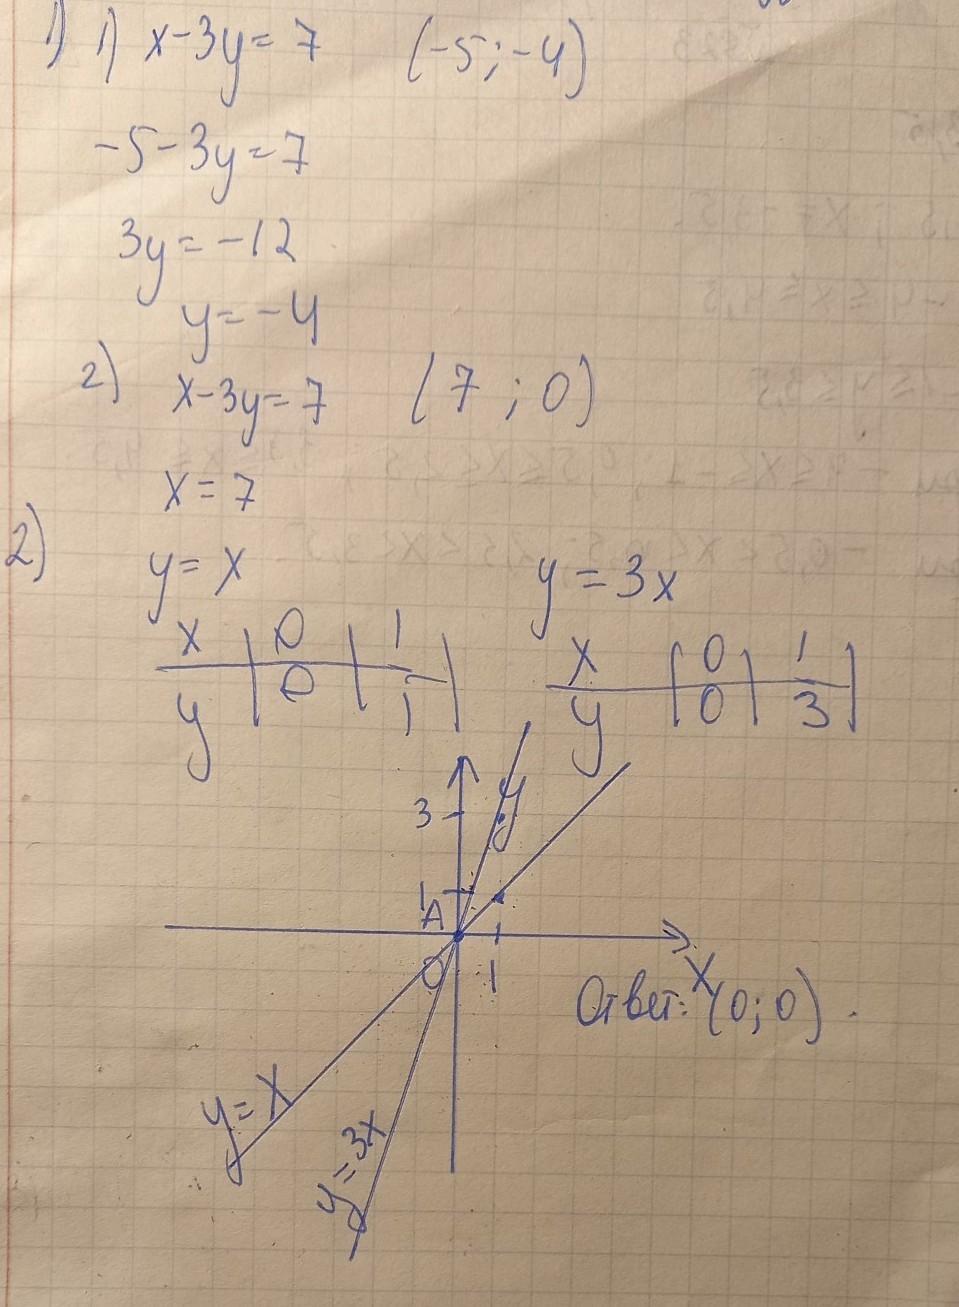 1) 1) x-3y=7 (-5;-4)
-5-3y=7
3y=-12
y=-4
2) x-3y=7 (7;0)
x=7
2) y=x y=3x
x | 0 | 1 | x | 0 | 1 |
y | 0 | 1 | y | 0 | 3 |
3 y
1
A
0 1 x
Ответ: (0;0).
y=x
y=3x